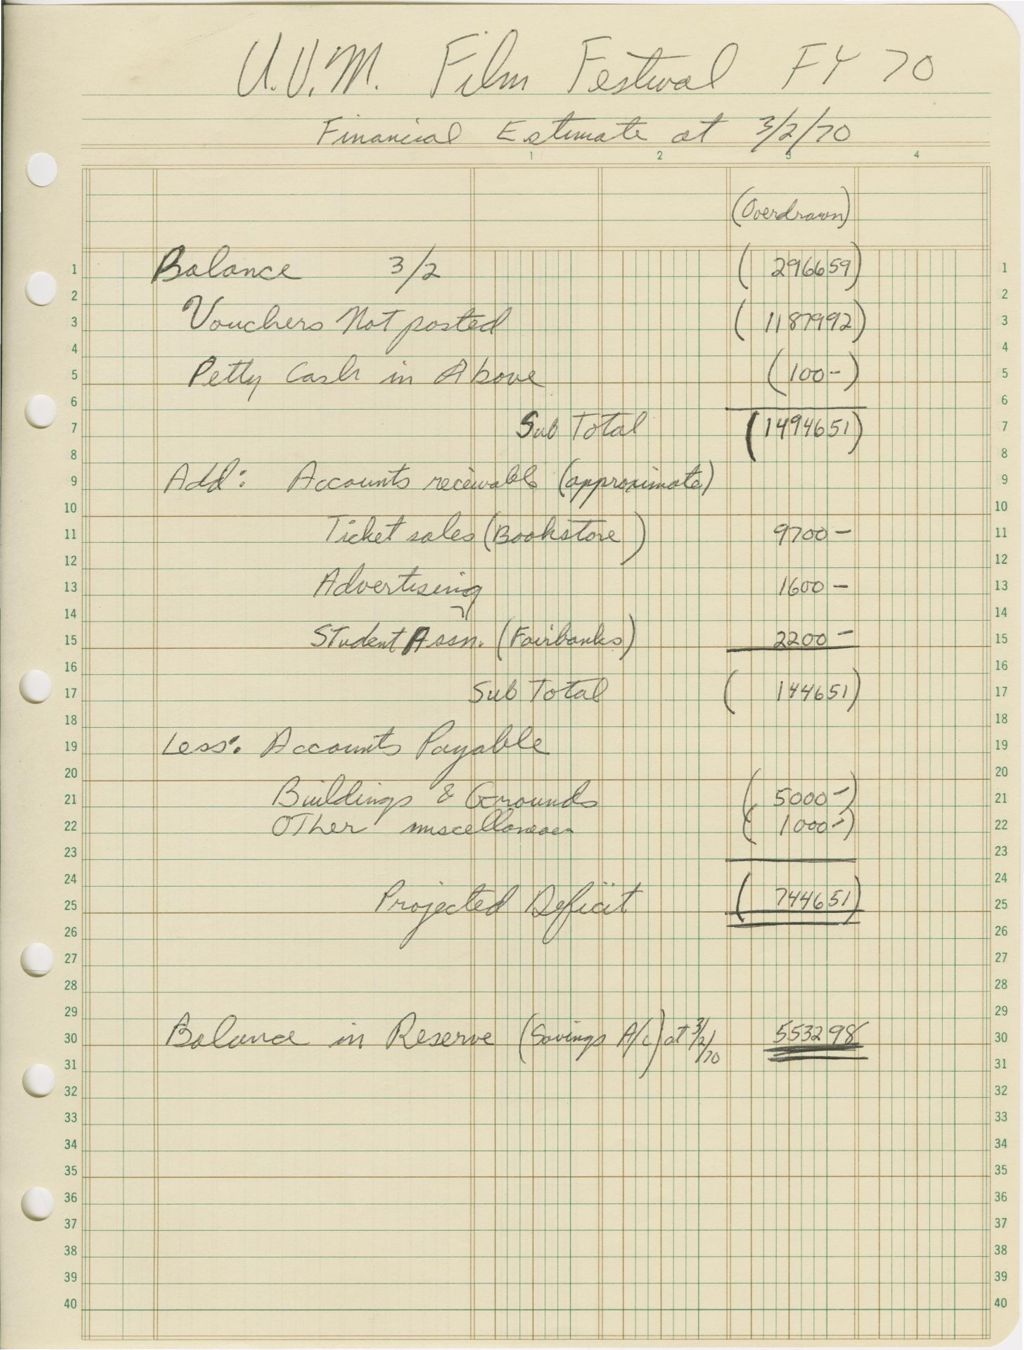 U.V.M. Film Festival FY 70
Financial Estimate at 3/2/70
1 2 3 4
(Overdrawn)
1 Balance 3/2 (296659) 1
2 2
3 Vouchers Not posted (1187992) 3
4 4
5 Petty Cash in Above (100-) 5
6 6
7 Sub Total (1494651) 7
8 8
9 Add: Accounts receivable (approximate) 9
10 10
11 Ticket sales (Bookstore) 9700- 11
12 12
13 Advertising 1600- 13
14 14
15 Student Assn. (Fairbanks) 2200- 15
16 16
17 Sub Total (144651) 17
18 18
19 Less: Accounts Payable 19
20 20
21 Buildings & Grounds (5000-) 21
22 Other miscellaneous (1000-) 22
23 23
24 24
25 Projected Deficit (744651) 25
26 26
27 27
28 28
29 29
30 Balance in Reserve (Savings A/c) at 3/2/70 553298 30
31 31
32 32
33 33
34 34
35 35
36 36
37 37
38 38
39 39
40 40